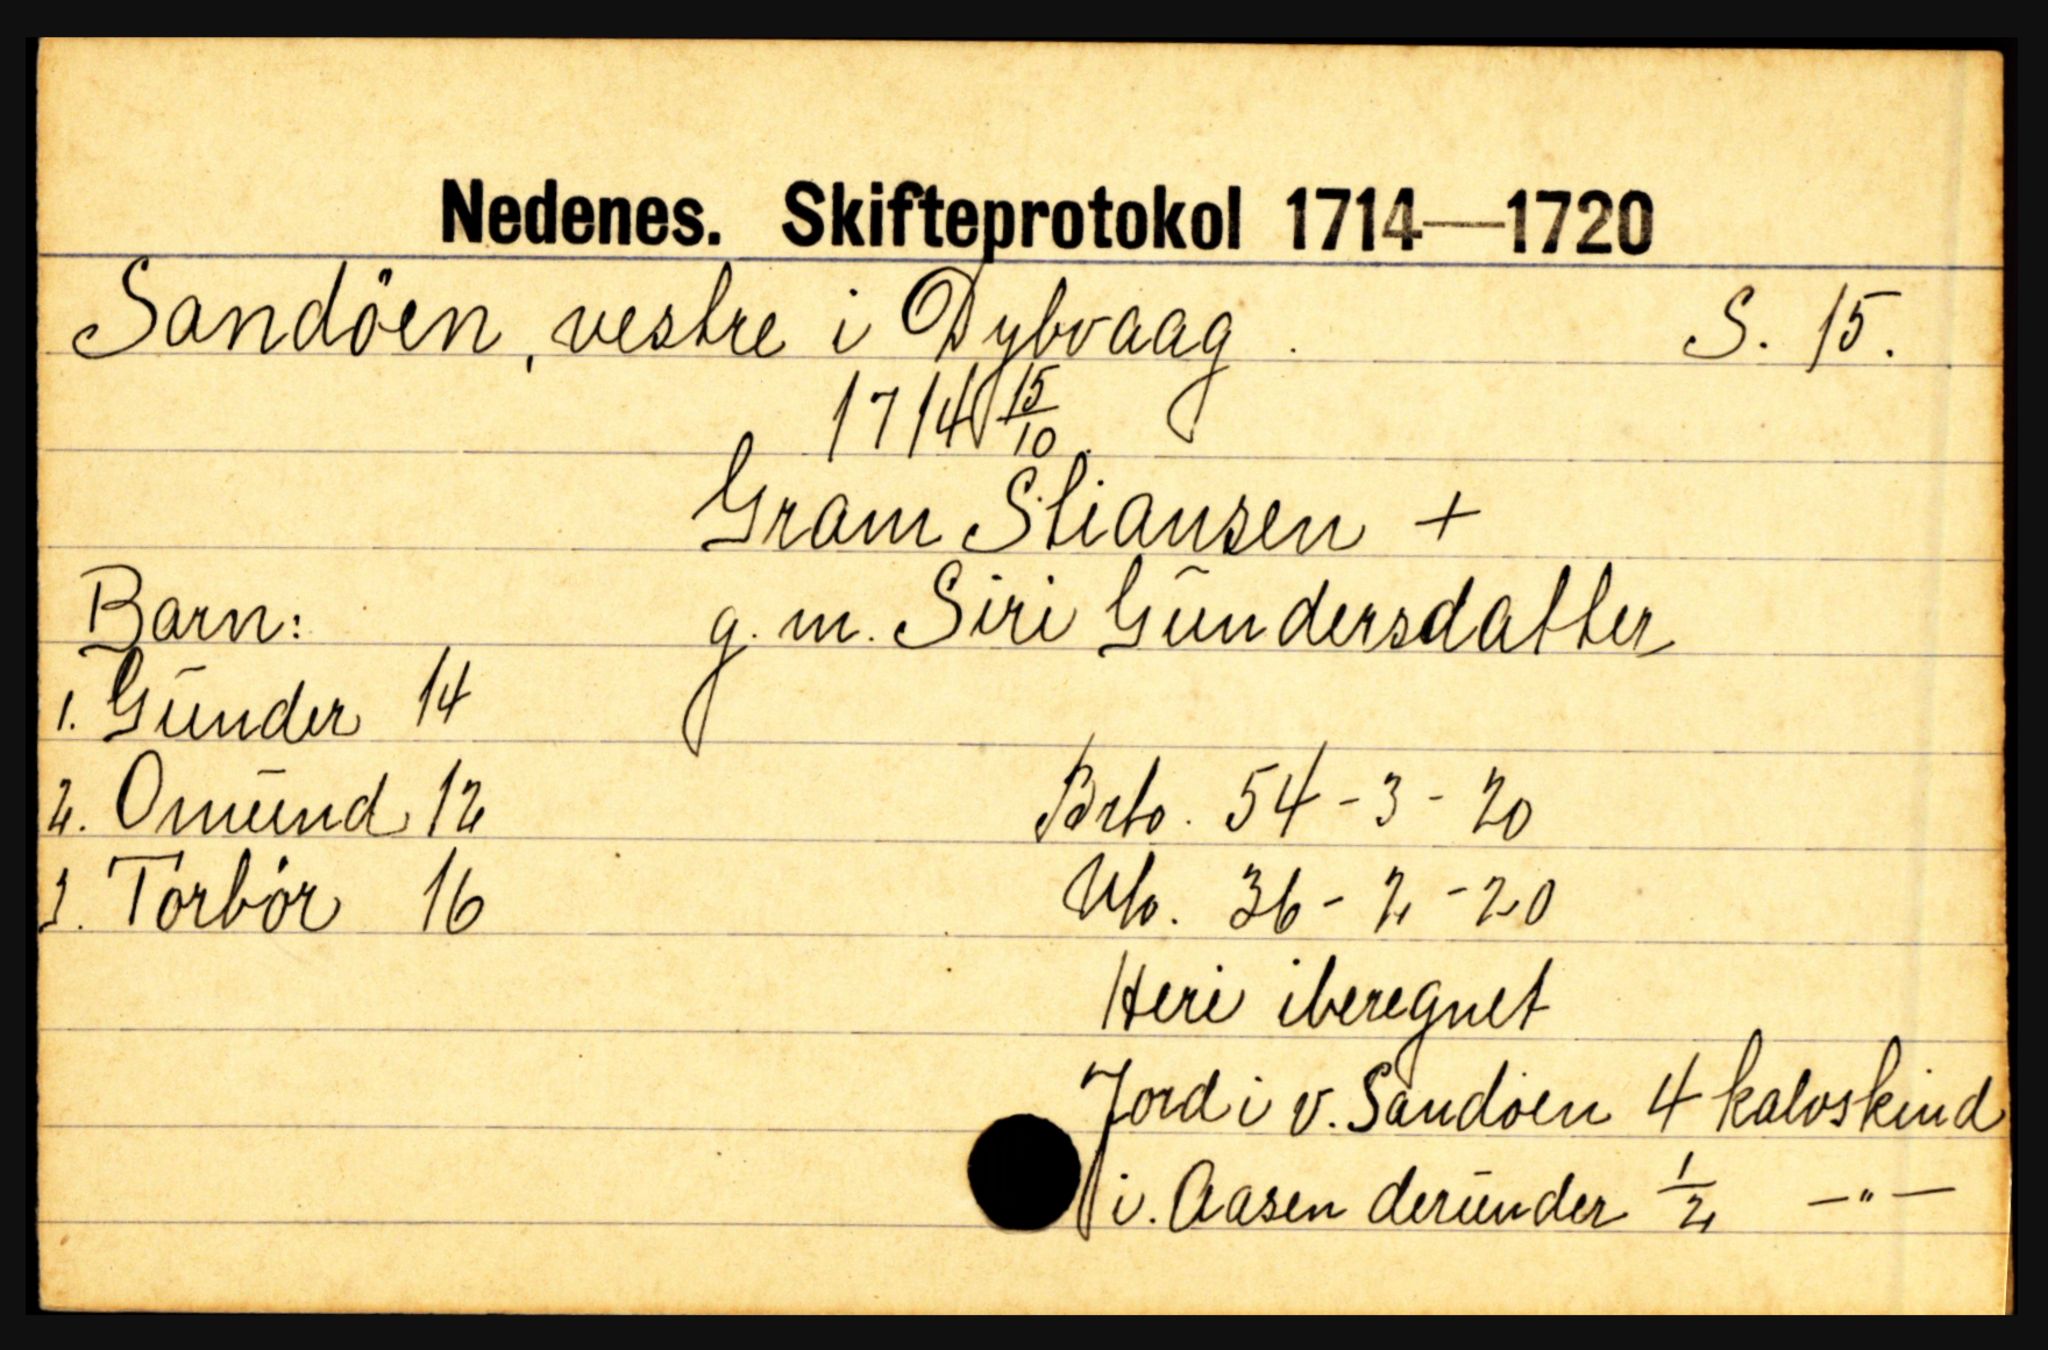 Nedenes. Skifteprotokol 1714—1720
Sandöen, vestre i Dybvaag. S. 15.
1714 15/10
Gram Stiansen +
Barn: g. m. Siri Gūndersdatter
1. Gūnder 14
2. Omūnd 12 Brto. 54-3-20
3. Torbör 16 Nto. 36-2-20
Heri iberegnet
Jord i v. Sandöen 4 kalvskind
i. Aasen derūnder 1/2 —"—